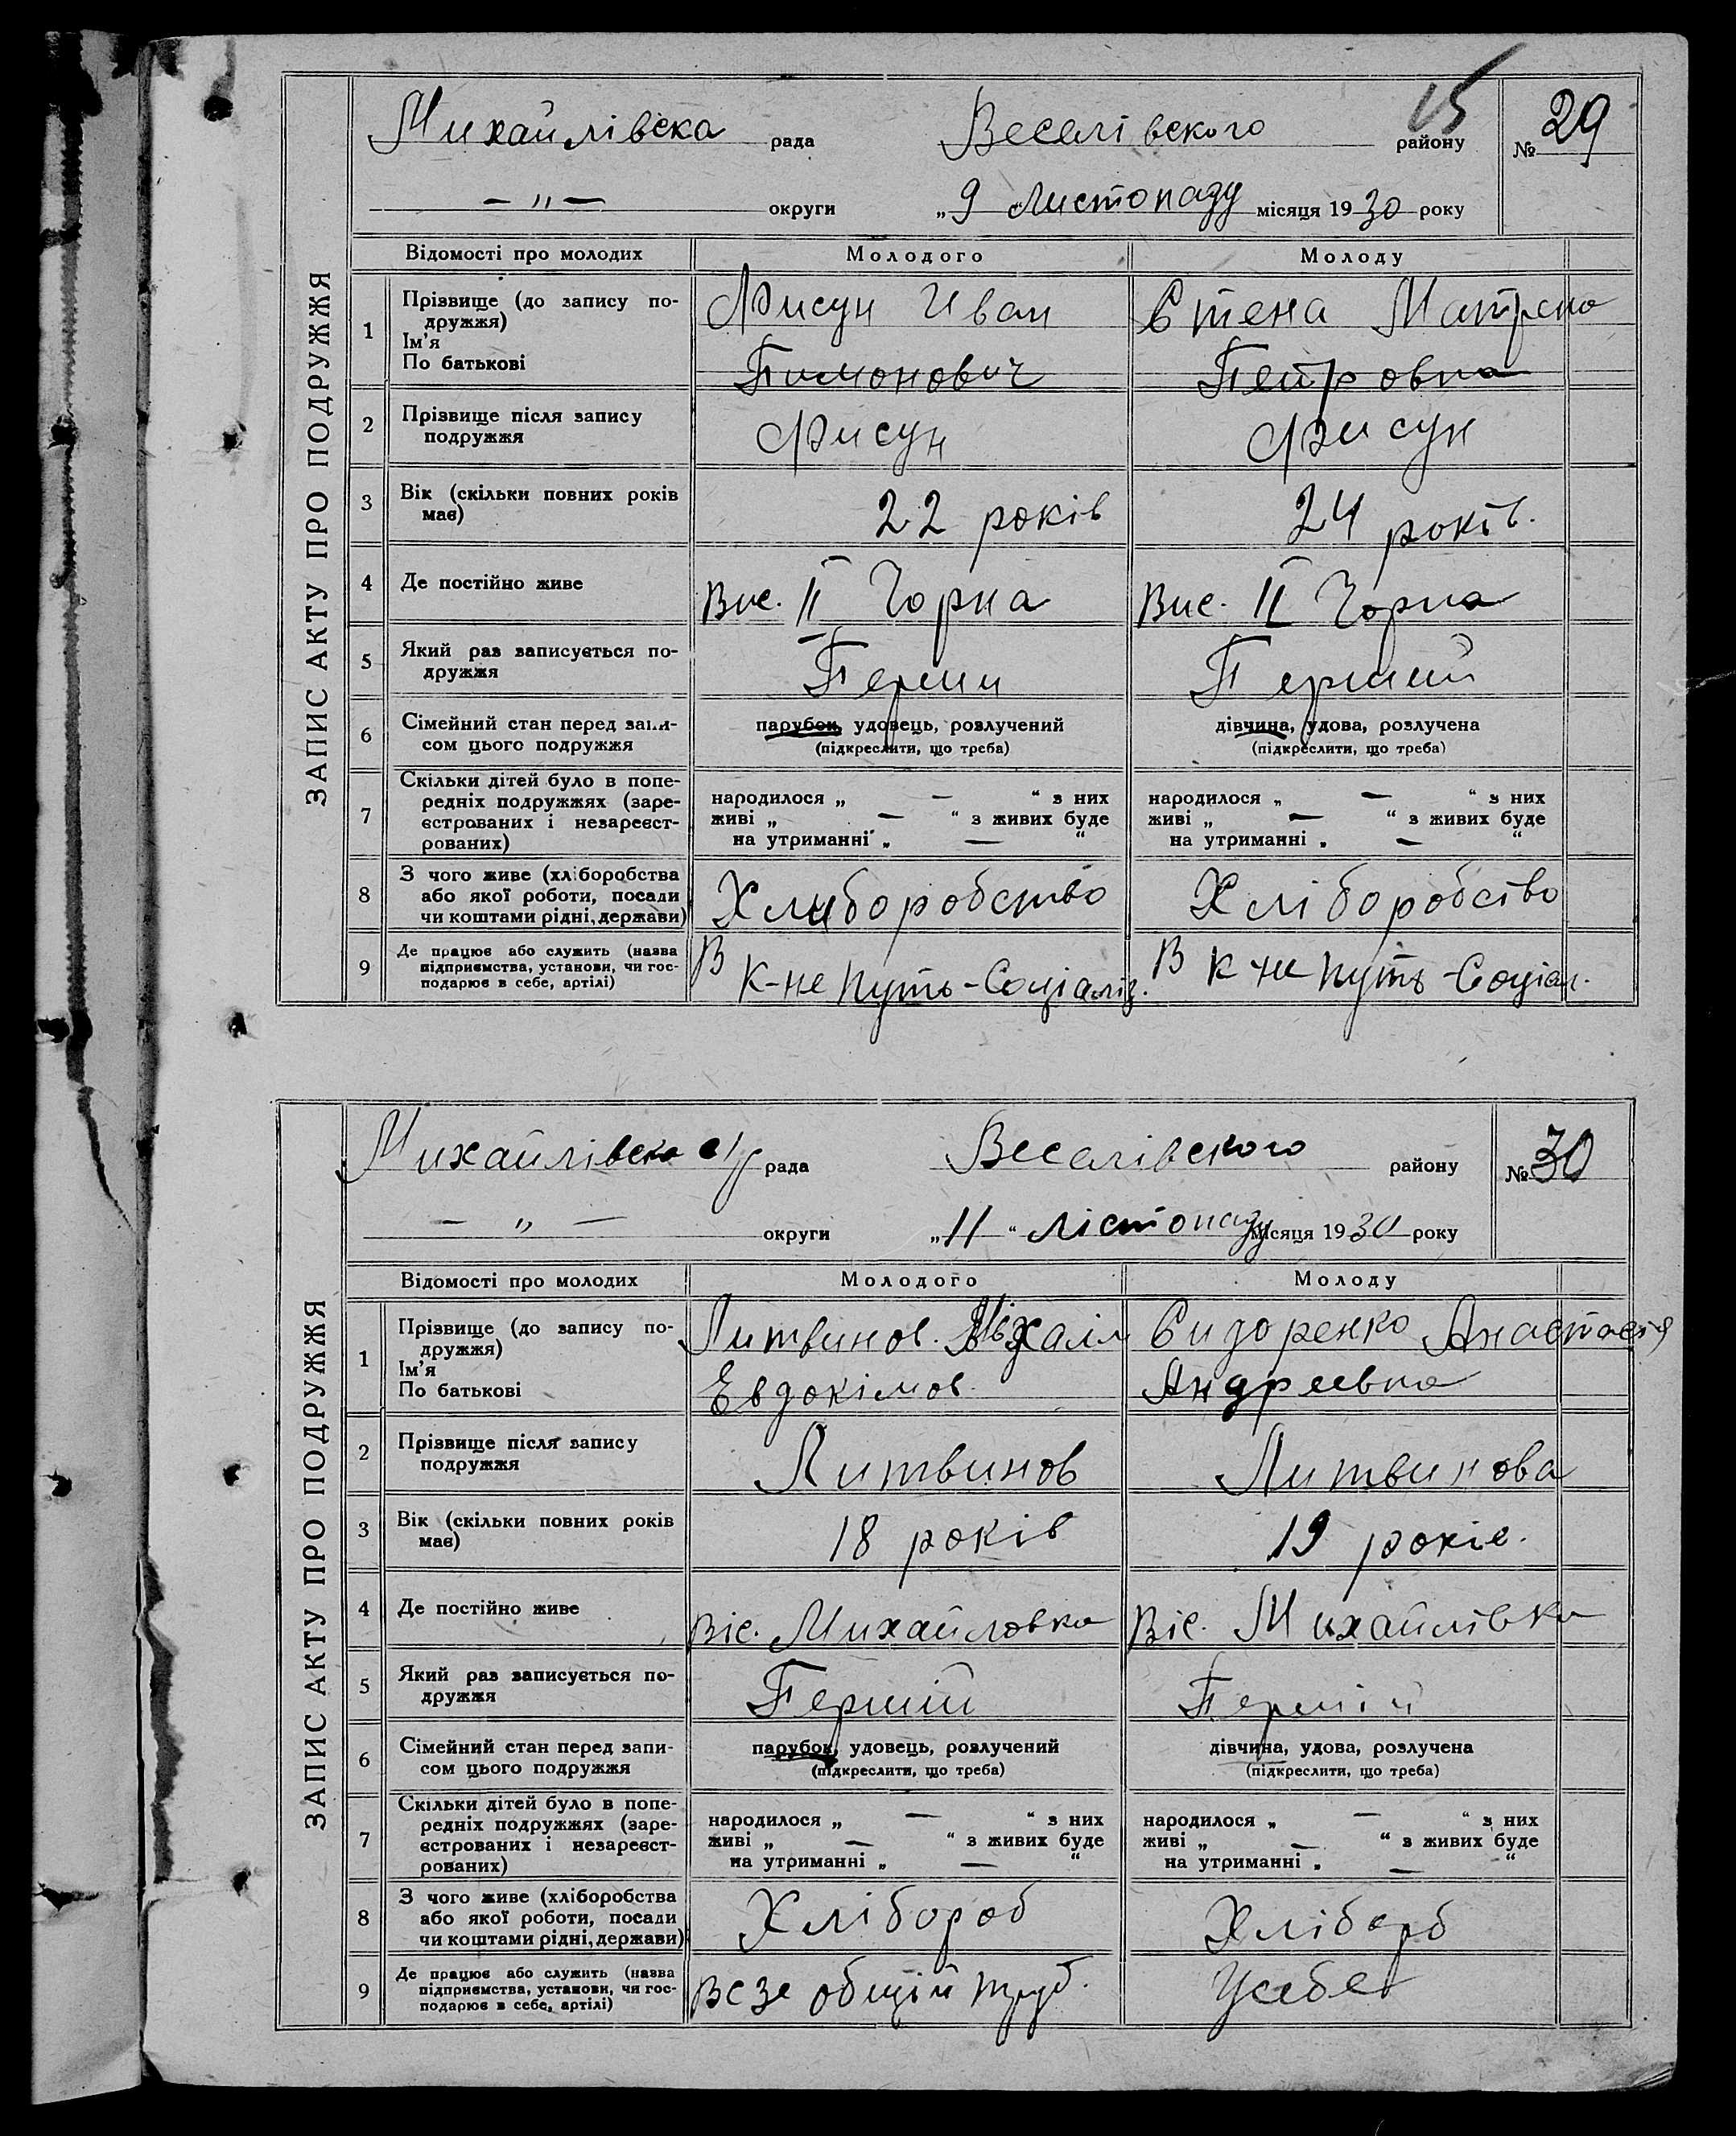 15
Михайлівска рада Веселівского району № 29
— „ — округи „9 Листопаду місяця 1930 року
ЗАПИС АКТУ ПРО ПОДРУЖЖЯ
Відомості про молодих Молодого Молоду
1 Прізвище (до запису по-
дружжя)
Ім'я
По батькові
Фисун Иван
Тимонович
Стена Матрена
Петровна
2 Прізвище після запису
подружжя
Фисун Фисун
3 Вік (скільки повних років
має)
22 років 24 років.
4 Де постійно живе Вис. II Чорна Вис. II Чорна
5 Який раз записується по-
дружжя
Перши Перший
6 Сімейний стан перед запи-
сом цього подружжя
парубок, удовець, розлучений
(підкреслити, що треба)
дівчина, удова, розлучена
(підкреслити, що треба)
7 Скільки дітей було в попе-
редніх подружжях (заре-
єстрованих і незареєст-
рованих)
народилося „ — “ з них
живі „ — “ з живих буде
на утриманні „ — “
народилося „ — “ з них
живі „ — “ з живих буде
на утриманні „ — “
8 З чого живе (хліборобства
або якої роботи, посади
чи коштами рідні, держави)
Хлиборобство Хліборобство
9 Де працює або служить (назва
підприємства, установи, чи гос-
подарює в себе, артілі)
В к-не Путь-Соціаліз.
В к-не Путь-Соціал.
Михайлівска с/р рада Веселівского району № 30
— „ — округи „11“ лістопаду місяця 1930 року
ЗАПИС АКТУ ПРО ПОДРУЖЖЯ
Відомості про молодих Молодого Молоду
1 Прізвище (до запису по-
дружжя)
Ім'я
По батькові
Литвинов. Міхаіл
Евдокімов.
Сидоренко Анастасія
Андреевна
2 Прізвище після запису
подружжя
Литвинов Литвинова
3 Вік (скільки повних років
має)
18 років 19 років.
4 Де постійно живе Віс. Михайловка Віс. Михайлівка
5 Який раз записується по-
дружжя
Першій Першій
6 Сімейний стан перед запи-
сом цього подружжя
парубок, удовець, розлучений
(підкреслити, що треба)
дівчина, удова, розлучена
(підкреслити, що треба)
7 Скільки дітей було в попе-
редніх подружжях (заре-
єстрованих і незареєст-
рованих)
народилося „ — “ з них
живі „ — “ з живих буде
на утриманні „ — “
народилося „ — “ з них
живі „ — “ з живих буде
на утриманні „ — “
8 З чого живе (хліборобства
або якої роботи, посади
чи коштами рідні, держави)
Хлібороб Хліборб
9 Де працює або служить (назва
підприємства, установи, чи гос-
подарює в себе, артілі)
общій труд. Усебе